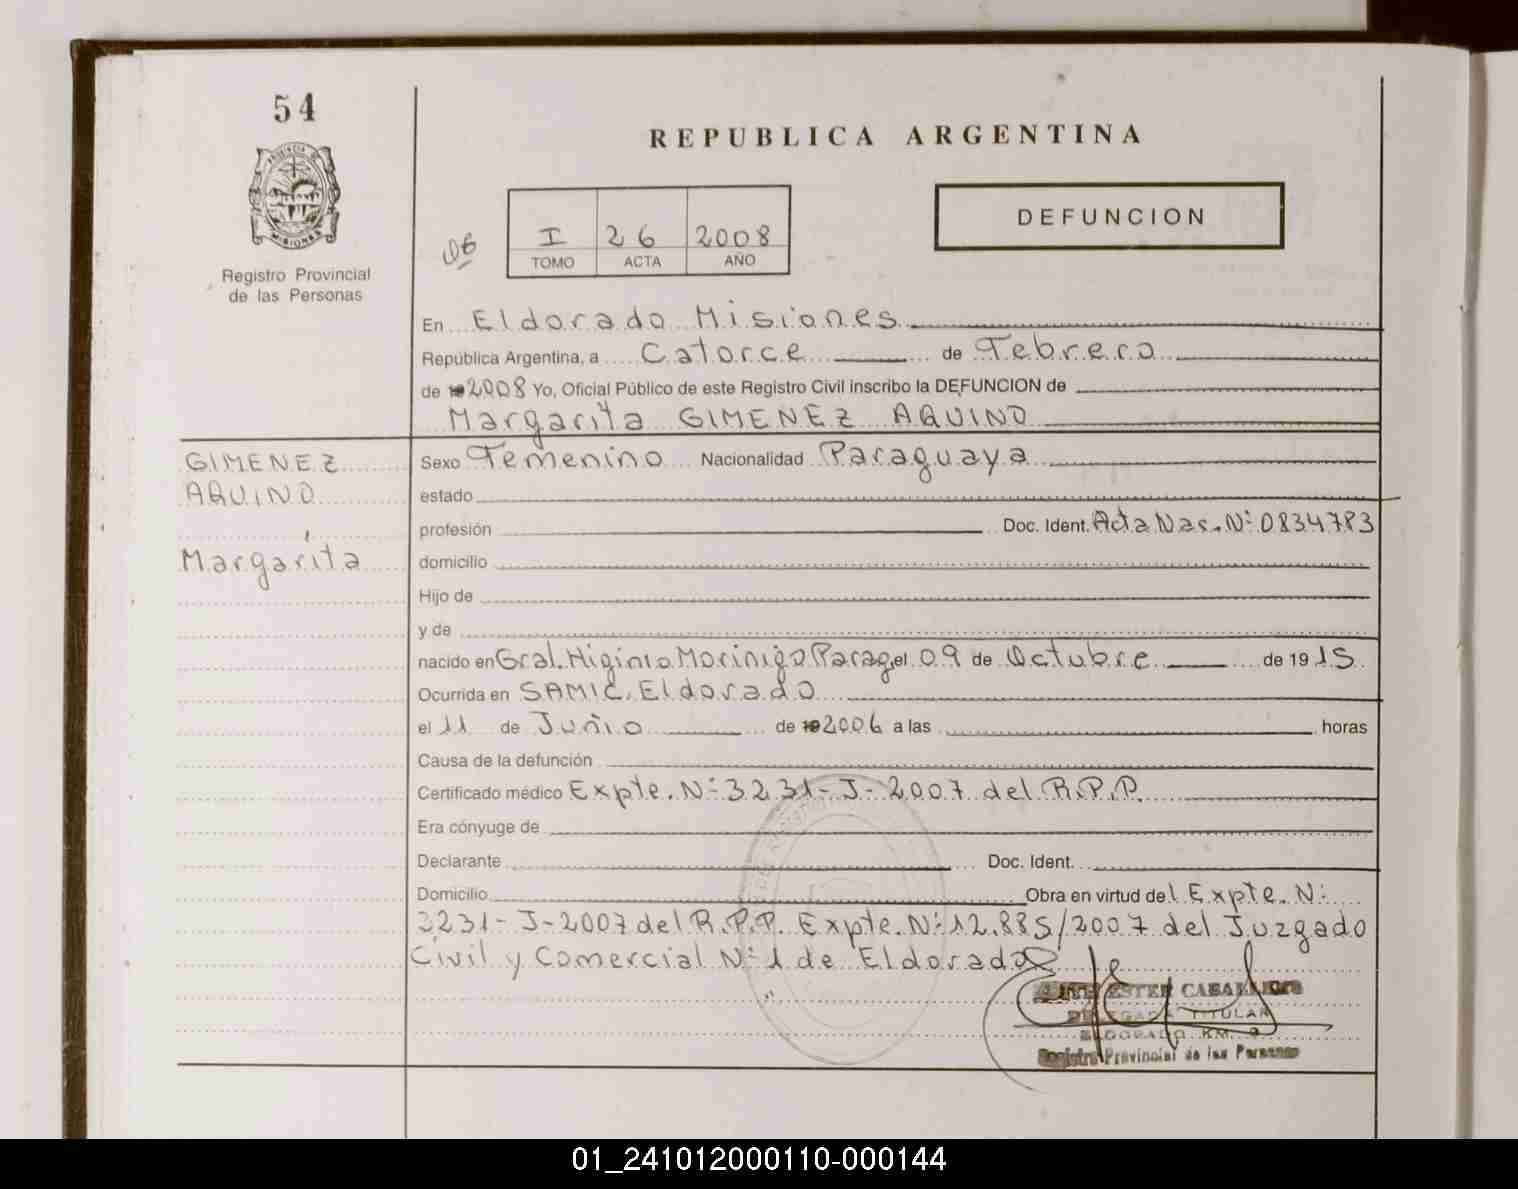 54
PROVINCIA DE
MISIONES
Registro Provincial
de las Personas
REPUBLICA ARGENTINA
DEFUNCION
06
I 26 2008
TOMO ACTA AÑO
En Eldorado Misiones
República Argentina, a Catorce de Febrero
de 2008 Yo, Oficial Público de este Registro Civil inscribo la DEFUNCION de
Margarita GIMENEZ AQUINO
GIMENEZ
AQUINO
Margarita
Sexo Femenino Nacionalidad Paraguaya
estado
profesión Doc. Ident. Acta Nac. Nº 0834783
domicilio
Hijo de
y de
nacido en Gral. Higinio Morinigo Parag. el 09 de Octubre de 1915
Ocurrida en SAMIC. Eldorado
el 11 de Junio de 2006 a las horas
Causa de la defunción
Certificado médico Expte. Nº 3231-J-2007 del R.P.P.
Era cónyuge de
Declarante Doc. Ident.
Domicilio Obra en virtud del Expte. Nº
3231-J-2007 del R.P.P. Expte. Nº 12.885/2007 del Juzgado
Civil y Comercial Nº 1 de Eldorado
ESTER CABALLERO
DELEGADA TITULAR
ELDORADO KM. 9
Registro Provincial de las Personas
01_241012000110-000144